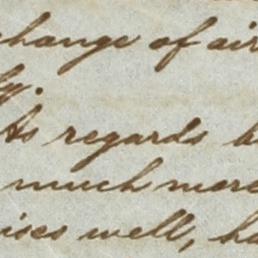 change of air
As regards
much more
well,